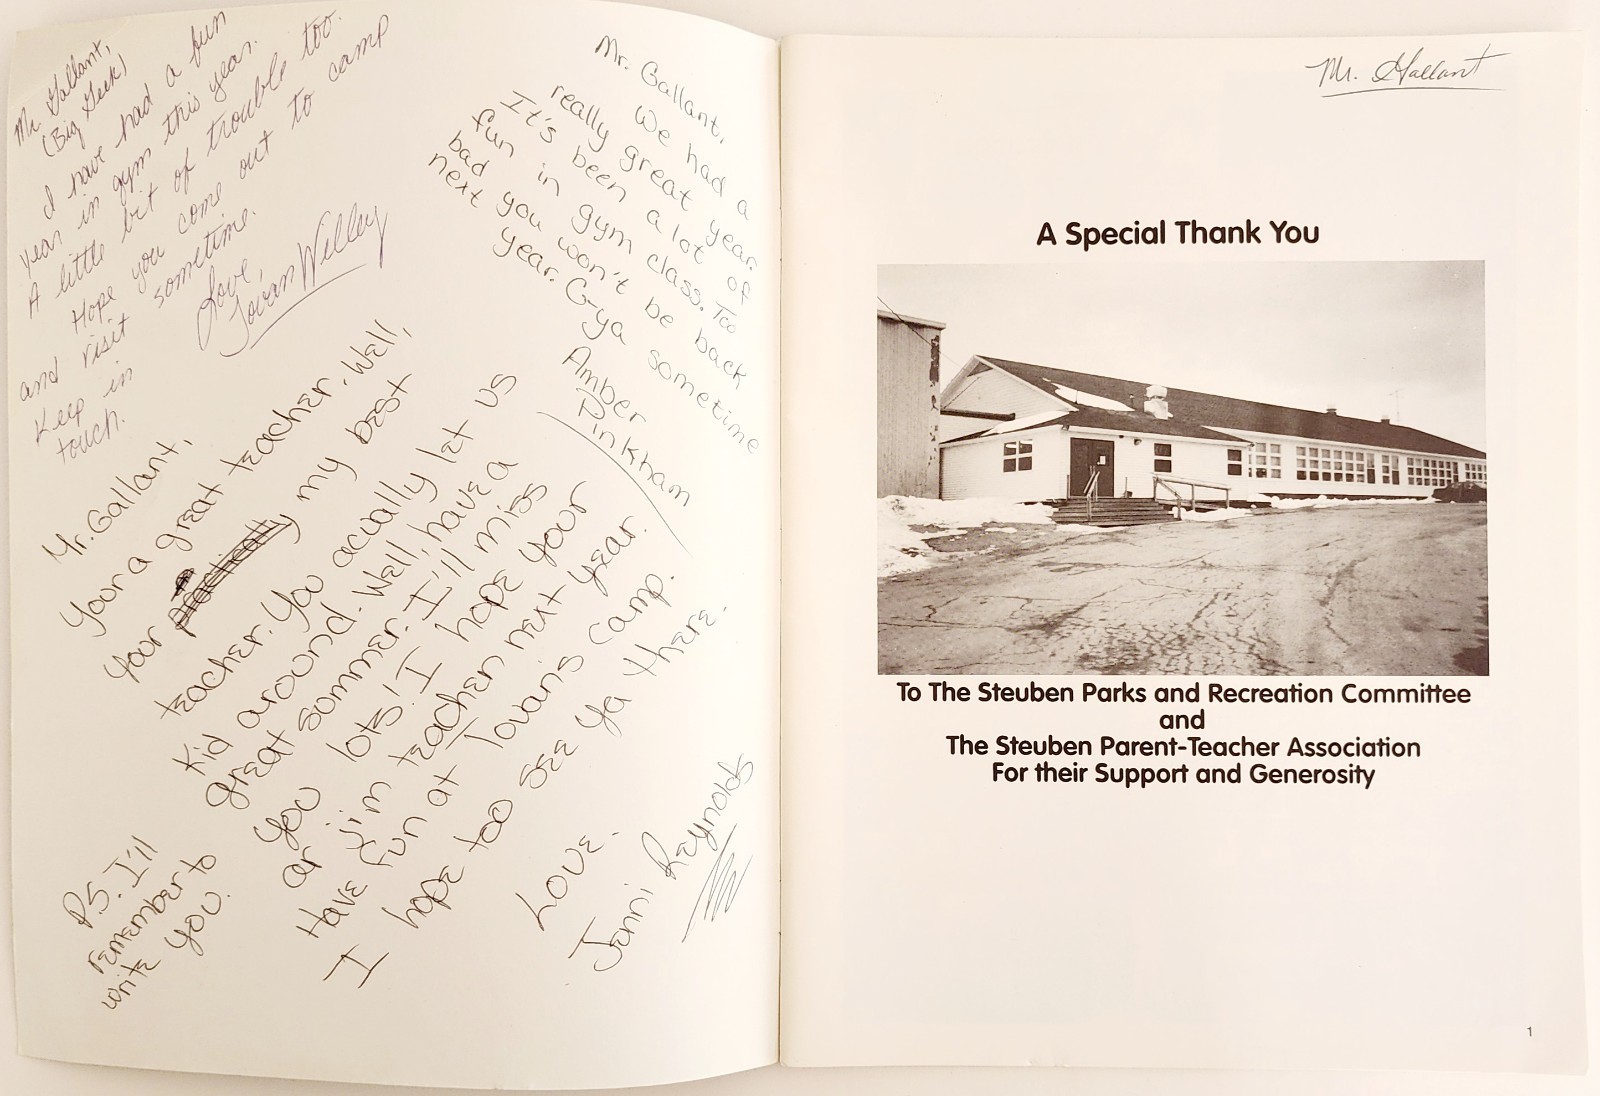 Mr. Gallant,
(Big Geek)
I have had a fun
year in gym this year.
A little bit of trouble too.
Hope you come out to camp
and visit sometime.
Keep in
touch.
Love,
Tovan Willey
Mr. Gallant,
We had a
really great year.
It's been a lot of
fun in gym class. Too
bad you won't be back
next year. C-ya sometime
Amber
Pinkham
Mr. Gallant,
Your a great teacher. Well,
your my best
teacher. You acually let us
kid around. Well, have a
great sommer. I'll miss
you lots! I hope your
ar jim teacher next year.
Have fun at Tovans camp.
I hope too see ya there.
Love.
Jenni Reynolds
P.S. I'll
remember to
write you.
Mr. Gallant
A Special Thank You
To The Steuben Parks and Recreation Committee
and
The Steuben Parent-Teacher Association
For their Support and Generosity
1